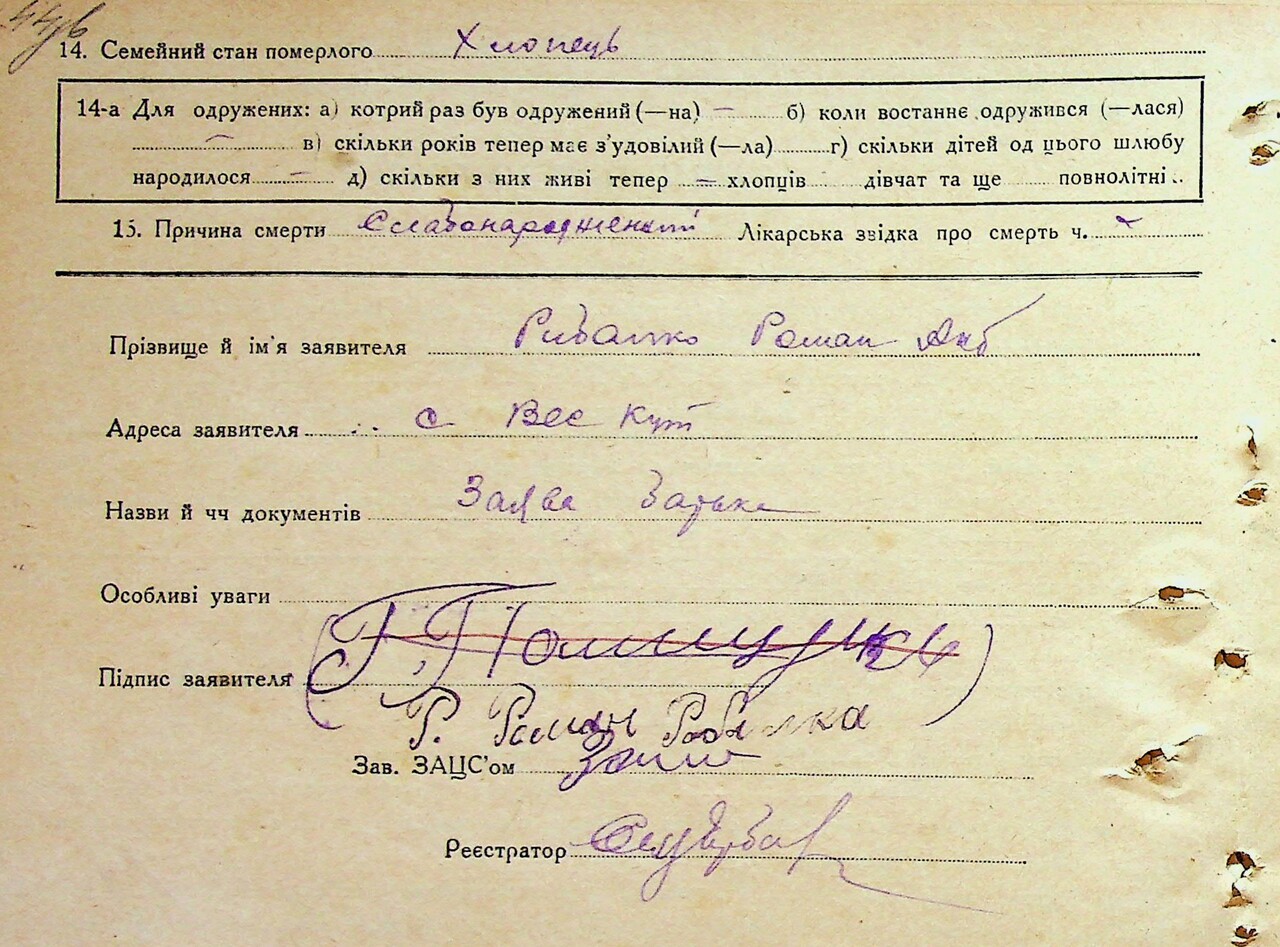 14. Семейний стан померлого Хлопець
14-а Для одружених: а) котрий раз був одружений (—на) — б) коли востаннє одружився (—лася)
— в) скільки років тепер має з’удовілий (—ла) г) скільки дітей од цього шлюбу
народилося — д) скільки з них живі тепер — хлопців дівчат та ще повнолітні
15. Причина смерти Слабонароджений Лікарська звідка про смерть ч. —
Прізвище й ім’я заявителя Рибалко Роман
Адреса заявителя с Вес Кут
Назви й чч документів Заява батька
Особливі уваги
Підпис заявителя
Р. Роман
Зав. ЗАЦС’ом
Реєстратор